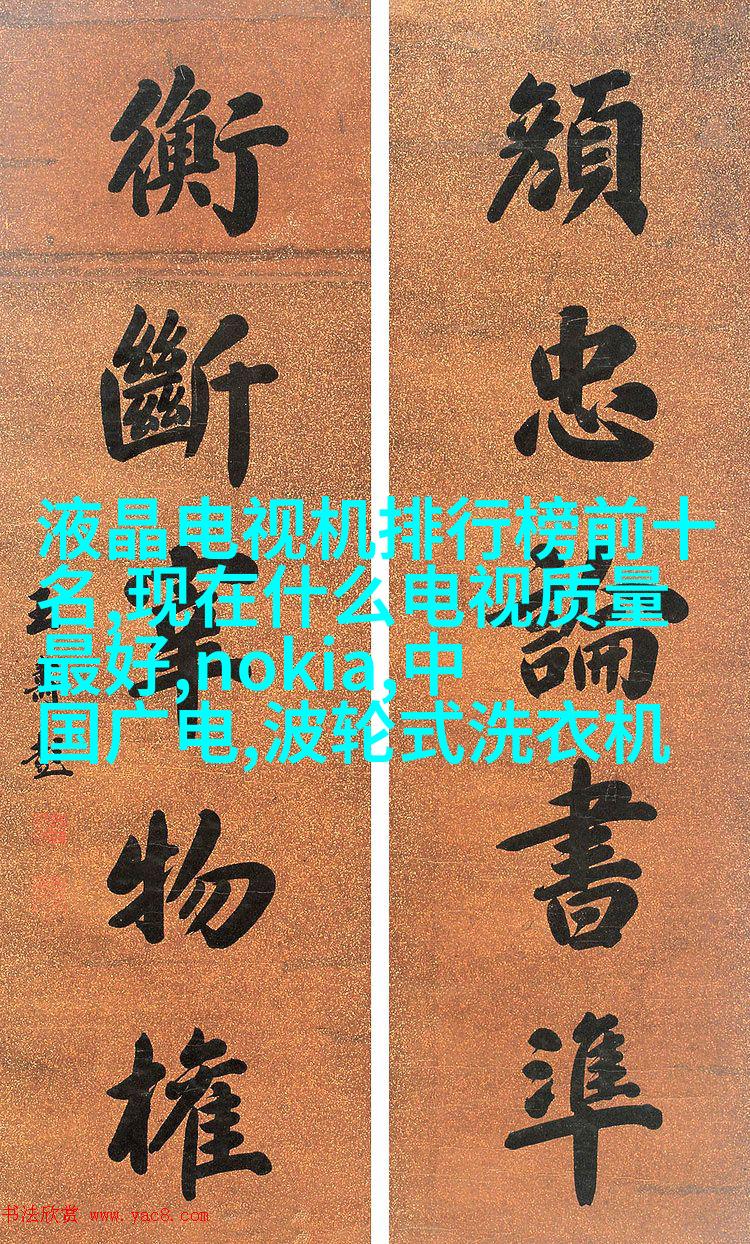 顔忠論書準
衡斷物權
液晶电视机排行榜前十
名,现在什么电视质量
最好,nokia,中
国广电,波轮式洗衣机
书法欣赏 www.yac8.com